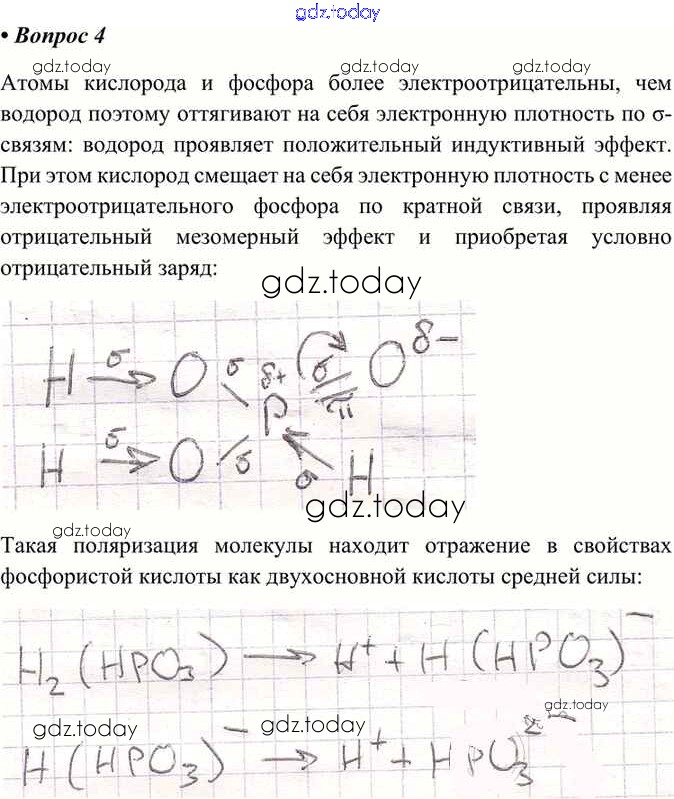 gdz.today
• Вопрос 4
gdz.today gdz.today gdz.today
Атомы кислорода и фосфора более электроотрицательны, чем
водород поэтому оттягивают на себя электронную плотность по σ-
связям: водород проявляет положительный индуктивный эффект.
При этом кислород смещает на себя электронную плотность с менее
электроотрицательного фосфора по кратной связи, проявляя
отрицательный мезомерный эффект и приобретая условно
отрицательный заряд:
gdz.today
H σ→ O σ δ+ σ O δ−
P π
H σ→ O σ σ H
gdz.today
gdz.today
Такая поляризация молекулы находит отражение в свойствах
фосфористой кислоты как двухосновной кислоты средней силы:
H₂(HPO₃) → H⁺ + H(HPO₃)⁻
gdz.today gdz.today gdz.today
H(HPO₃)⁻ → H⁺ + HPO₃²⁻